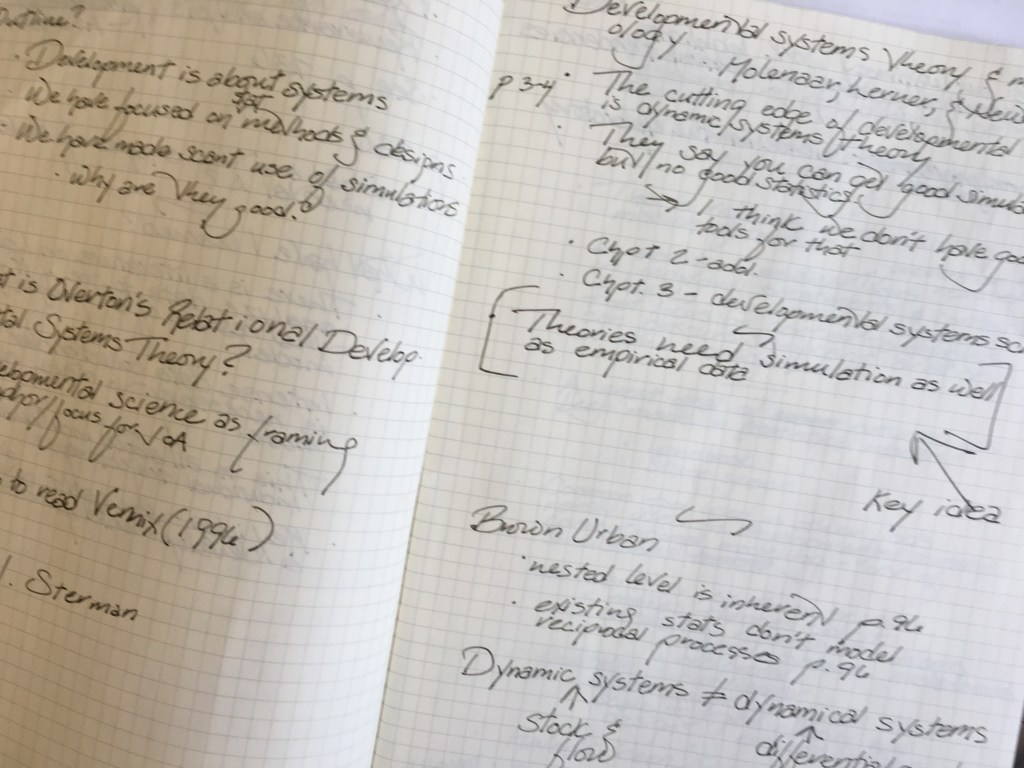 Outline?
· Development is about systems
· We have focused on stat methods & designs
· We have made scant use of simulations
· Why are they good?
t is Overton's Relational Develop.
tal Systems Theory?
elopmental science as framing
focus for
to read (1996)
Sterman
Developmental systems theory &
ology. Molenaar, Lerner, &
p 3-4 · The cutting edge of developmental
is dynamic/systems theory
· They say you can get good simula
but no good statistics.
→ I think we don't have goo
tools for that
· Chpt 2 - add.
· Chpt. 3 - developmental systems sc
[Theories need simulation as well
as empirical data]
Key idea
Brown Urban
· nested level is inherent p. 96
· existing stats don't model
reciprocal processes p. 96
Dynamic systems ≠ dynamical systems
↑ ↑
stock & differential
flow